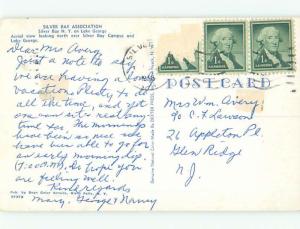 SILVER BAY ASSOCIATION
Silver Bay N. Y. on Lake George
Aerial view looking north over Silver Bay Campus and
Lake George.
Dear Mrs. Avery,
Just a note to say
we are having a lovely
vacation. Plenty to do
all the time, and yet
one can sit a real long
time too. The mornings
have been so nice we
have been able to go for
an early morning dip
(7:00 A.M.) Do hope you
are feeling well.
Kind regards
Mary, George & Nancy
POSTCARD
Mrs Wm. Avery
26 Appleton Pl.
Glen Ridge
N.J.